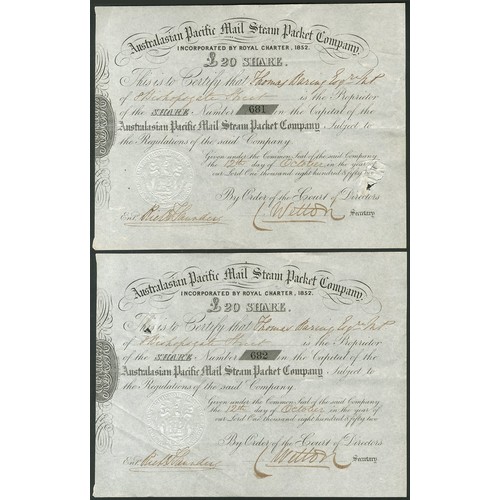 Australasian Pacific Mail Steam Packet Company,
INCORPORATED BY ROYAL CHARTER, 1852.
£20 SHARE.
This is to Certify that Thomas Baring Esqre M.P
of 8 Bishopsgate Street is the Proprietor
of the SHARE Number 681 in the Capital of the
Australasian Pacific Mail Steam Packet Company, Subject to
the Regulations of the said Company.
Given under the Common Seal of the said Company
the 12th day of October in the year of
our Lord One thousand eight hundred & fifty
By Order of the Court of Directors
Entd. C. Wetton Secretary.
Australasian Pacific Mail Steam Packet Company,
INCORPORATED BY ROYAL CHARTER, 1852.
£20 SHARE.
This is to Certify that Thomas Baring Esqre M.P
of 8 Bishopsgate Street is the Proprietor
of the SHARE Number 682 in the Capital of the
Australasian Pacific Mail Steam Packet Company, Subject to
the Regulations of the said Company.
Given under the Common Seal of the said Company,
the 12th day of October in the year of
our Lord One thousand eight hundred & fifty two
By Order of the Court of Directors
Entd. C. Wetton Secretary.